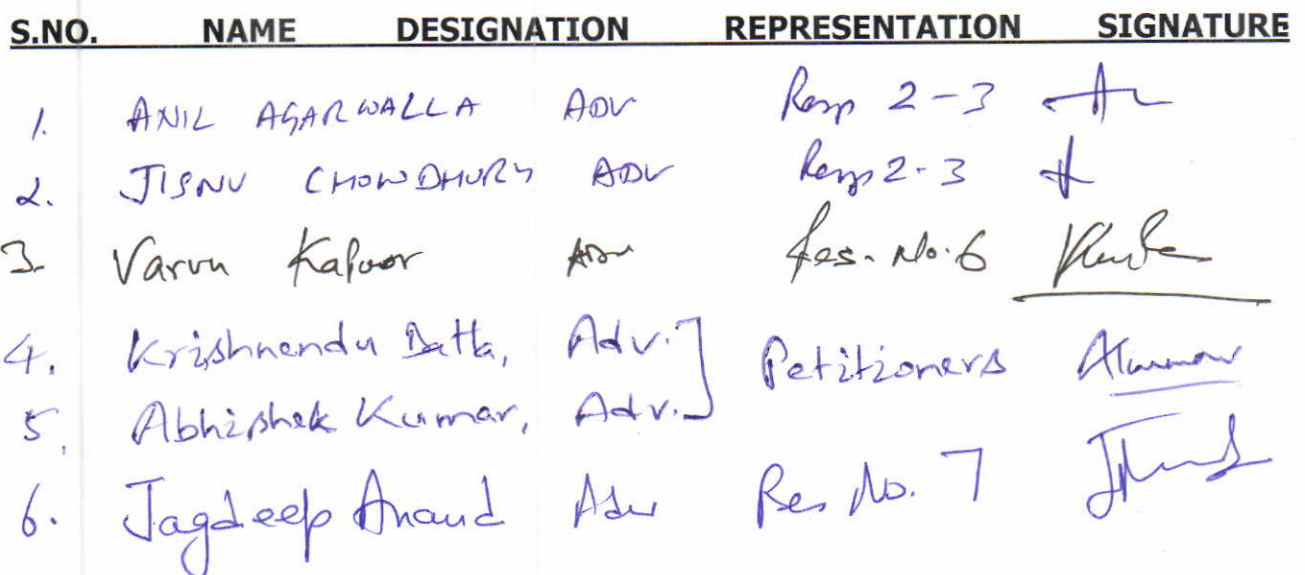 S.NO. NAME DESIGNATION REPRESENTATION SIGNATURE
1. ANIL AGARWALLA ADV Resp 2-3
2. JISNU CHOWDHURY ADV Resp 2-3
3. Varun Kapoor Adv Res. No. 6
4. Krishnendu Datta, Adv. Petitioners
5. Abhishek Kumar, Adv.
6. Jagdeep Anand Adv Res No. 7